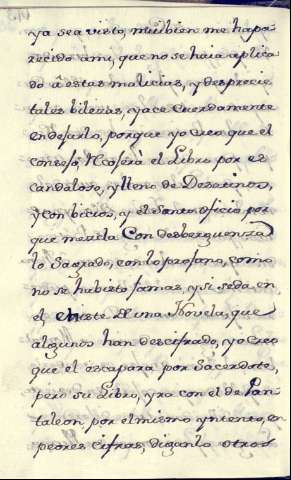 ya sea visto, muibien me hapa
recido ami, que no se haia aplica
do â estas malicias, y desprecie
tales bilezas, yace cuerdamente
en dejarlo, porque yo creo que el
consejo Rcojerà el Libro por es
candaloso, y lleno de Desatinos,
y con bicios, y el Santo oficio por
que mescla Con desberguenza
lo Sagrado, con lo profano, como
no se habisto jamas, y si seda, en
el chiste de una Novela, que
algunos han descifrado, yo Creo
que el escapara por Sacerdote,
pero su Libro, yra con el de Pan
taleon, por el mismo yntento, en
peores cifras, diganlo otros